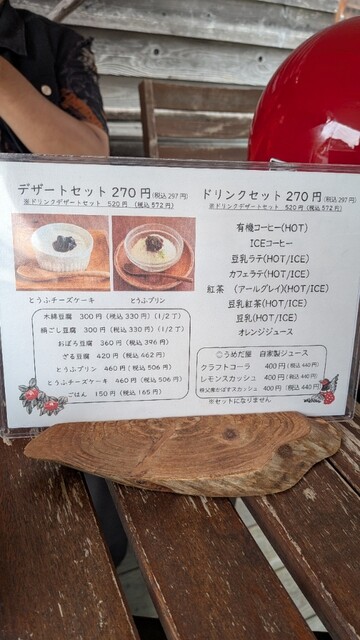 デザートセット 270円(税込 297円)
※ドリンクデザートセット 520円 (税込 572円)
とうふチーズケーキ
とうふプリン
木綿豆腐 300円(税込 330円)(1/2丁)
絹ごし豆腐 300円(税込 330円)(1/2丁)
おぼろ豆腐 360円(税込 396円)
ざる豆腐 420円(税込 462円)
とうふプリン 460円(税込 506円)
とうふチーズケーキ 460円(税込 506円)
ごはん 150円(税込 165円)
ドリンクセット 270円(税込 297円)
※ドリンクデザートセット 520円 (税込 572円)
有機コーヒー(HOT)
ICEコーヒー
豆乳ラテ(HOT/ICE)
カフェラテ(HOT/ICE)
紅茶 (アールグレイ)(HOT/ICE)
豆乳紅茶(HOT/ICE)
豆乳(HOT/ICE)
オレンジジュース
◎うめだ屋 自家製ジュース
クラフトコーラ 400円(税込 440円)
レモンスカッシュ 400円(税込 440円)
秩父産かぼすスカッシュ 400円(税込 440円)
※セットになりません